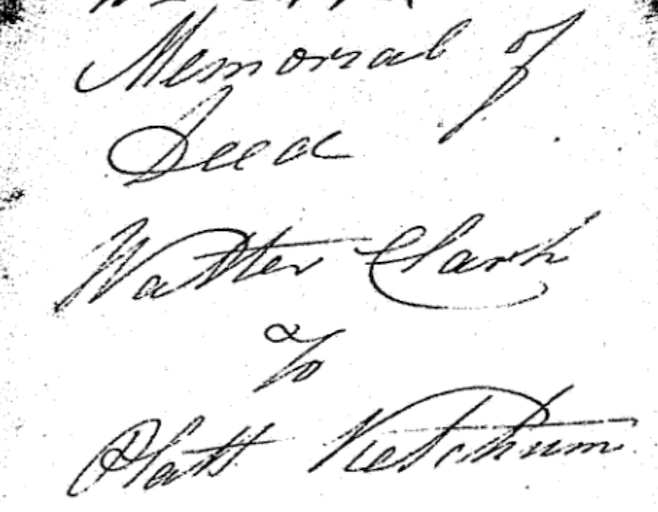 Memorial of
Deed
Walter Clark
To
Platt Ketchum